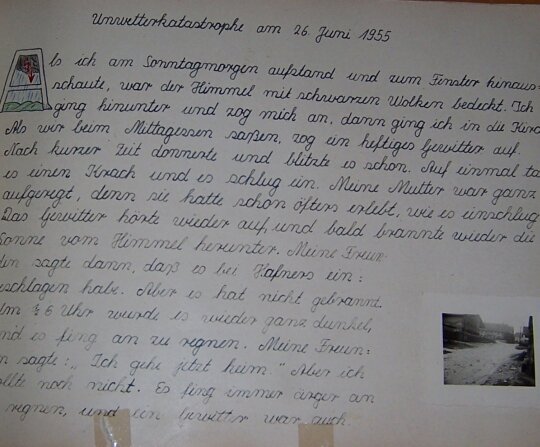 Unwetterkatastrophe am 26. Juni 1955
Als ich am Sonntagmorgen aufstand und zum Fenster hinaus=
schaute, war der Himmel mit schwarzen Wolken bedeckt. Ich
ging hinunter und zog mich an, dann ging ich in die Kirc
Als wir beim Mittagessen saßen, zog ein heftiges Gewitter auf.
Nach kurzer Zeit donnerte und blitzte es schon. Auf einmal ta
es einen Krach und es schlug ein. Meine Mutter war ganz
aufgeregt, denn sie hatte schon öfters erlebt, wie es einschlug
Das Gewitter hörte wieder auf, und bald brannte wieder die
Sonne vom Himmel herunter. Meine Freun
din sagte dann, daß es bei Hafners ein=
eschlagen habe. Aber es hat nicht gebrannt.
Um ½ 6 Uhr wurde es wieder ganz dunkel,
nd es fing an zu regnen. Meine Freun=
n sagte: „Ich gehe jetzt heim." Aber ich
ollte noch nicht. Es fing immer ärger an
regnen, und ein Gewitter war auch